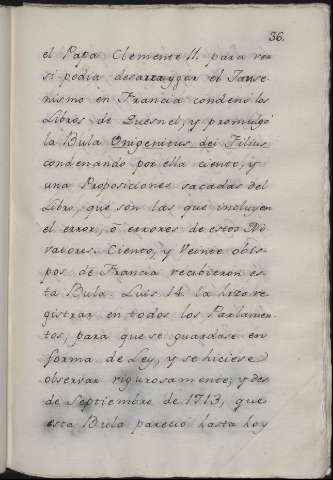 36.
el Papa Clemente 11. para ver
si podia desarraygar el Janse
nismo en Francia condenó los
Libros de Quesnel, y promulgó
la Bula Unigenitus dei Filius
condenando por ella ciento, y
una Proposiciones sacadas del
Libro, que son las que incluyen
el error, ó errores de estos No
vatores. Ciento, y Veinte obis
pos de Francia recibieron es
ta Bula. Luis 14. la hizo re
gistrar en todos los Parlamen
tos, para que se guardase en
forma de Ley, y se hiciese
observar rigurosamente, y des
de Septiembre de 1713, que
esta Bula pareció hasta hoy